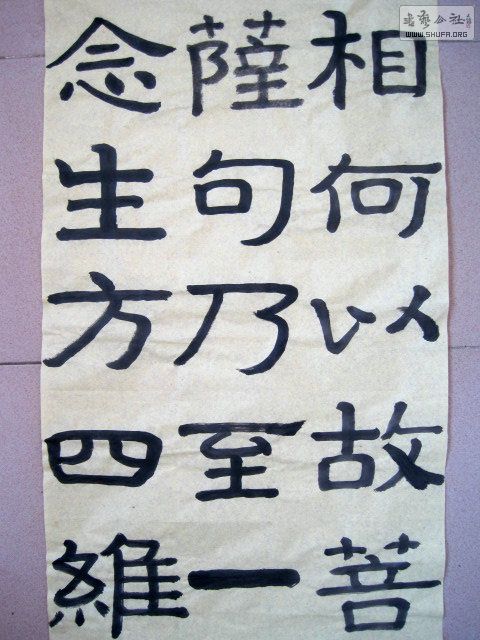 相何以故菩
薩句乃至一
念生方四維
WWW.SHUFA.ORG